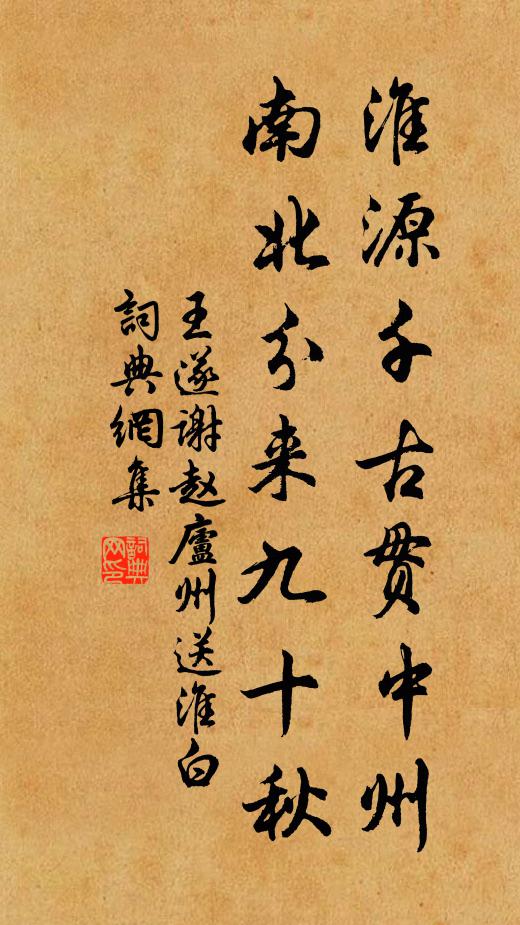 淮源千古贯中州
南北分来九十秋
王遂谢赵廬州送淮白
詞典網集
詞典网印